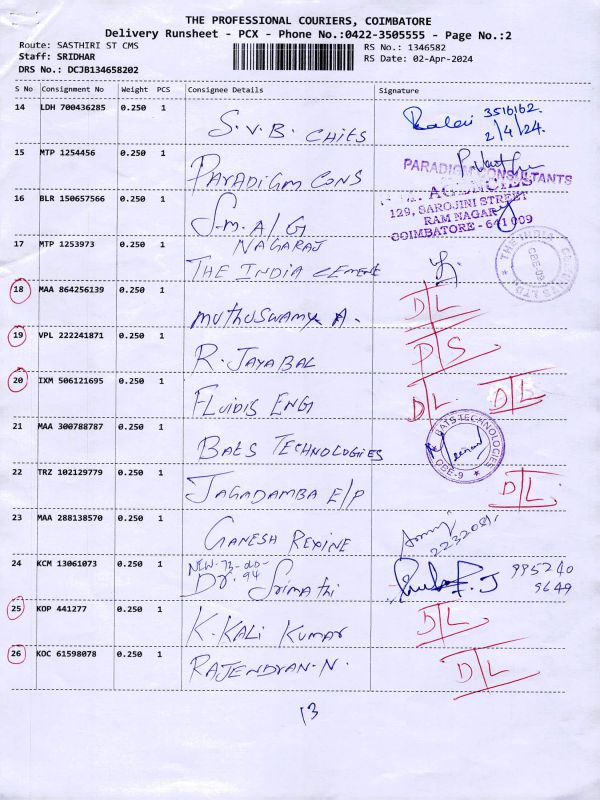 THE PROFESSIONAL COURIERS, COIMBATORE
Delivery Runsheet - PCX - Phone No.:0422-3505555 - Page No.:2
Route: SASTHIRI ST CMS
RS No.: 1346582
Staff: SRIDHAR
RS Date: 02-Apr-2024
DRS No.: DCJB134658202
S No Consignment No Weight PCS Consignee Details Signature
14 LDH 700436285 0.250 1 S.V.B. CHITS 3516162
2/4/24.
15 MTP 1254456 0.250 1 PARADIGM CONS
PARADIGM CONSULTANTS
16 BLR 150657566 0.250 1 S.M. A/G
AGENCIES
129, SAROJINI STREET
RAM NAGAR
COIMBATORE - 641 009
NAGARAJ
17 MTP 1253973 0.250 1 THE INDIA CEMENT
THE INDIA CEMENTS LTD
CBE-09
18 MAA 864256139 0.250 1 MUTHUSWAMY A. D/L
19 VPL 222241871 0.250 1 R. JAYABAL D/S
20 IXM 506121695 0.250 1 FLUIDIS ENG D/L D/L
21 MAA 300788787 0.250 1 BATS TECHNOLOGIES
BATS TECHNOLOGIES
CBE-9
22 TRZ 102129779 0.250 1 JAGADAMBA E/P D/L
23 MAA 288138570 0.250 1 GANESH REXINE
24 KCM 13061073 0.250 1 NEW-73-OLD-94
Dr. Srimathi 995240
9649
25 KOP 441277 0.250 1 K. KALI KUMAR D/L
26 KOC 61598078 0.250 1 RAJENDRAN.N. D/L
13